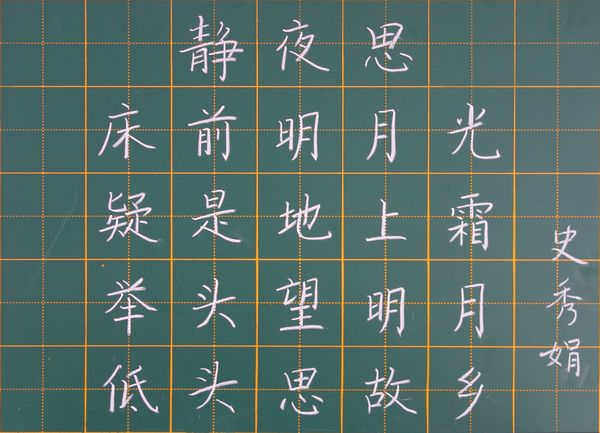 静夜思
床前明月光
疑是地上霜
举头望明月
低头思故乡
史秀娟